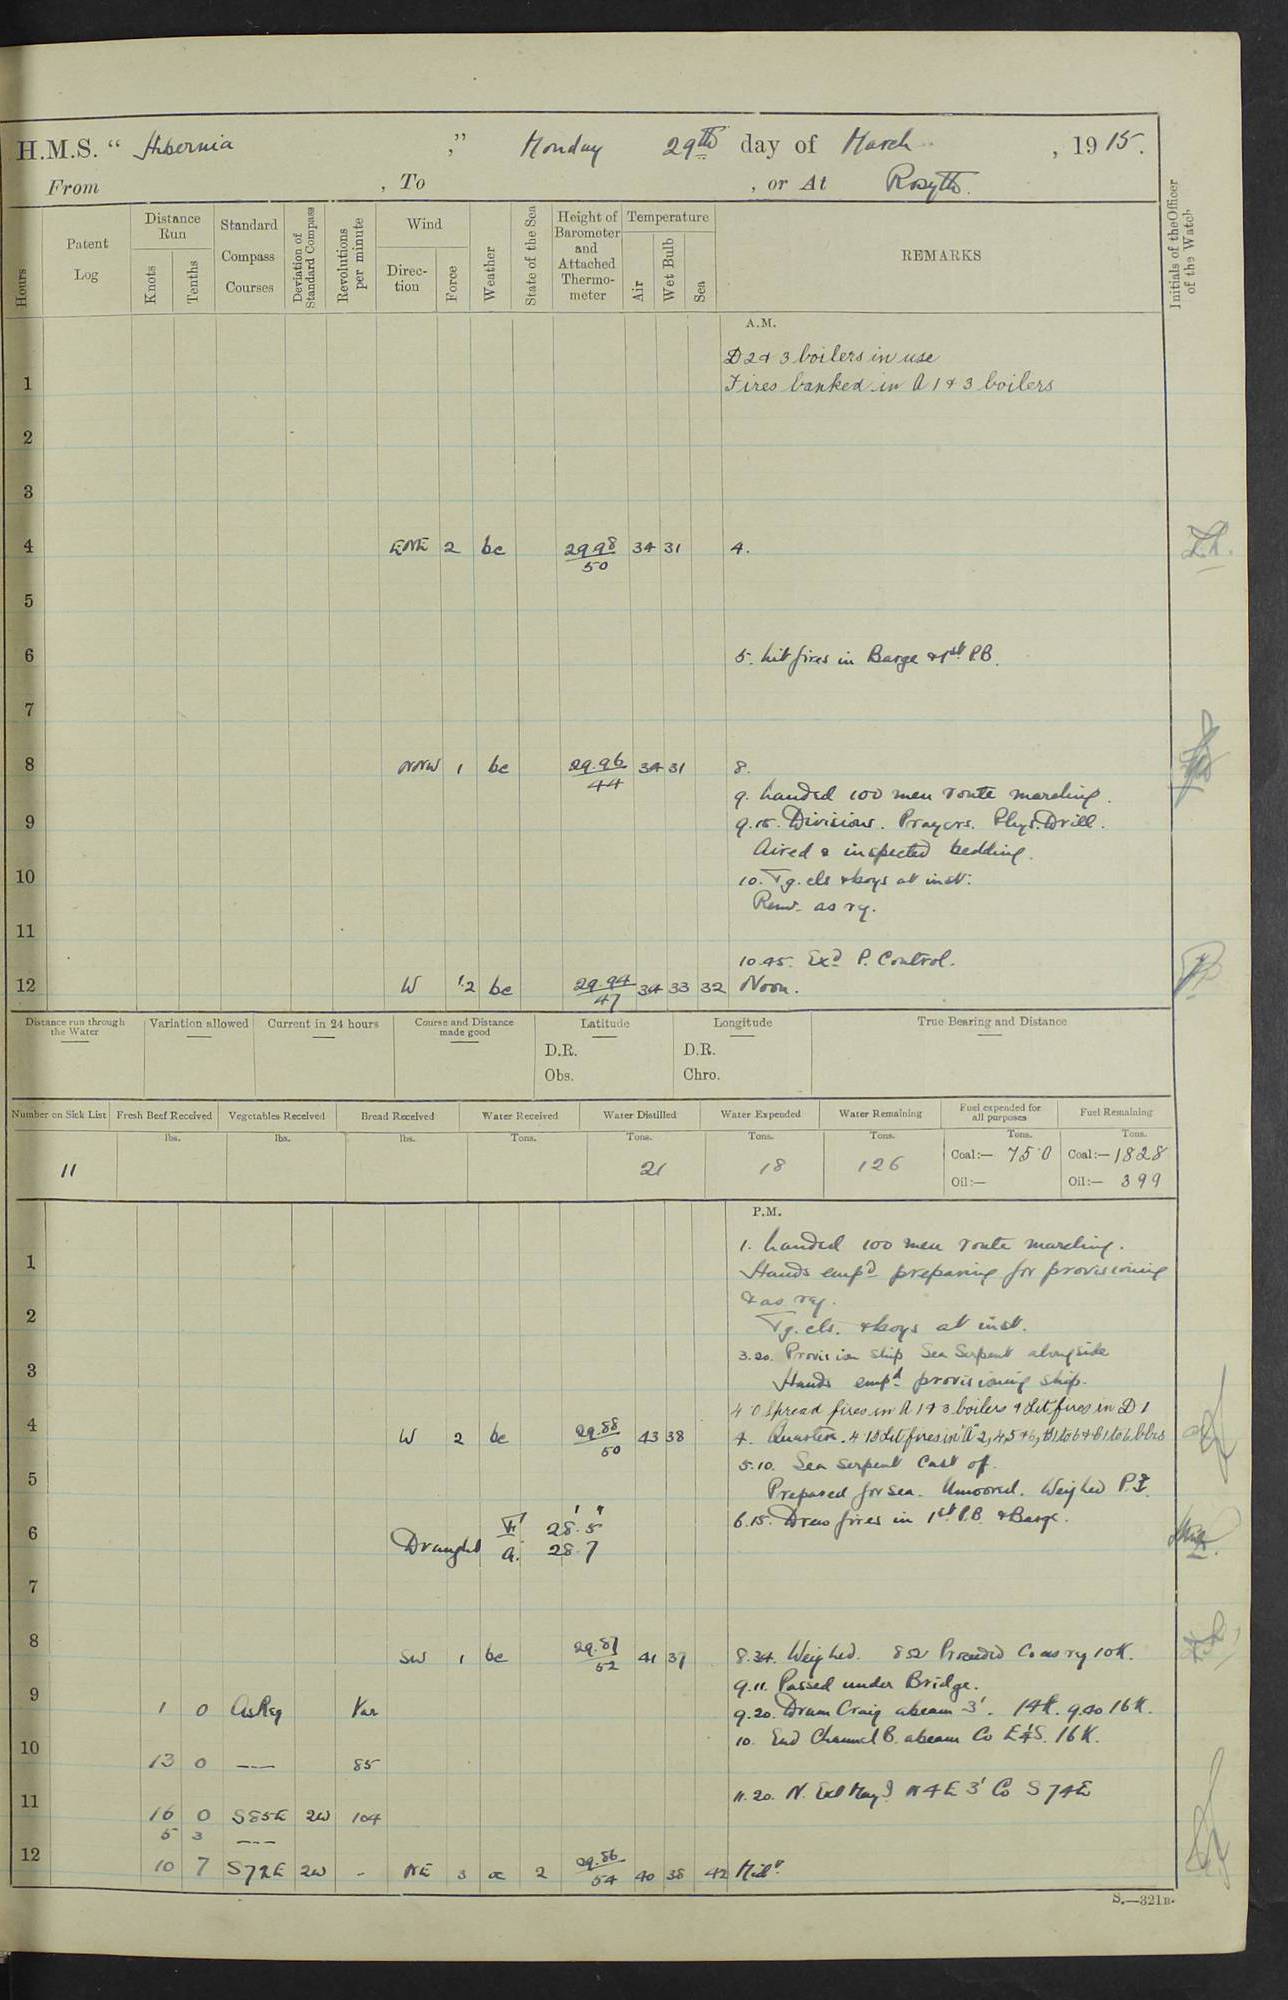 H.M.S. " Hibernia ," Monday 29th day of March , 1915.
From , To , or At Rosyth.
Hours
Patent Log
Distance Run
Knots
Tenths
Standard Compass Courses
Deviation of Standard Compass
Revolutions per minute
Wind
Direc-tion
Force
Weather
State of the Sea
Height of Barometer and Attached Thermo-meter
Temperature
Air
Wet Bulb
Sea
REMARKS
Initials of the Officer of the Watch
A.M.
D 2 & 3 boilers in use
1 Fires banked in A 1 & 3 boilers
2
3
4 ENE 2 bc 29.98 34 31 4.
50
5
6 5. Lit fires in Barge & 1st P.B.
7
8 NNW 1 bc 29.96 34 31 8.
44
9. Landed 100 men route marching.
9 9.15. Divisions. Prayers. Phys. Drill.
Aired & inspected bedding.
10 10. Tg. cls & boys at inst:
Remr. as rq.
11
10.45. Exd P. Control.
12 W 1.2 bc 29.94 34 33 32 Noon.
47
Distance run through the Water
Variation allowed
Current in 24 hours
Course and Distance made good
Latitude
D.R.
Obs.
Longitude
D.R.
Chro.
True Bearing and Distance
Number on Sick List
Fresh Beef Received
Vegetables Received
Bread Received
Water Received
Water Distilled
Water Expended
Water Remaining
Fuel expended for all purposes
Fuel Remaining
lbs. lbs. lbs. Tons. Tons. Tons. Tons. Tons. Tons.
11 21 18 126 Coal:— 75.0 Coal:— 1828
Oil:— Oil:— 399
P.M.
1. Landed 100 men route marching.
1 Hands empd preparing for provisioning
& as rq.
2 Tg. cls. & boys at inst.
3.20. Provision ship Sea Serpent alongside
3 Hands empd provisioning ship.
4.0 Spread fires in A 1 & 3 boilers & Lit fires in D 1
4 W 2 bc 29.88 43 38 4. Quarters. 4.15 Lit fires in "A" 2, 4, 5 & 6, B 1 to 6 & C 1 to 6 blrs
50
5.10. Sea Serpent Cast off.
5 Prepared for sea. Unmoored. Weighed P.
6.15. Drew fires in 1st P.B. & Barge.
6 Draught F. 28' 5"
A. 28 7
7
8 SW 1 bc 29.87 41 37 8.34. Weighed. 852 Proceeded Co as rq 10 K.
52
9.11. Passed under Bridge.
9 1 0 As Req Var 9.20. Drum Craig abeam 3'. 14 K. 9.40 16 K.
10. End Channel B. abeam Co E¼S. 16 K.
10 13 0 —— 85
11.20. N. Ext May I N 4 E 3' Co S 74 E
11 16 0 S85E 2W 104
5 3 ——
12 10 7 S72E 2W - NE 3 oc 2 29.86 40 38 42 Midt.
54
S.—321B.